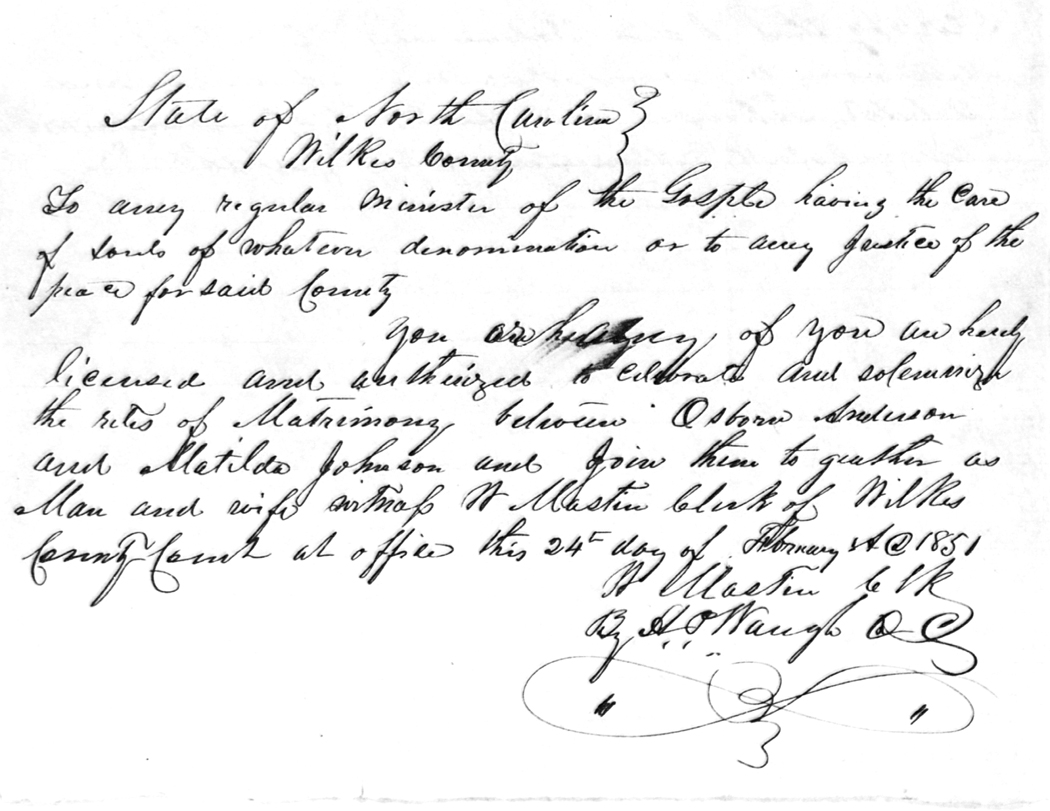 State of North Carolina
Wilkes County
To anny regular Minister of the Gosple having the Care
of souls of whatever denomination or to anny Justice of the
peace for said County
You or anny of You are herely
licensed and authorized to celebrate and solemnize
the rites of Matrimony between Osborn Anderson
and Matilda Johnson and Join them to geather as
Man and wife witness W Mastin Clerk of Wilkes
County Court at office this 24th day of February A D 1851
W Mastin Clk
By A P Waugh D C